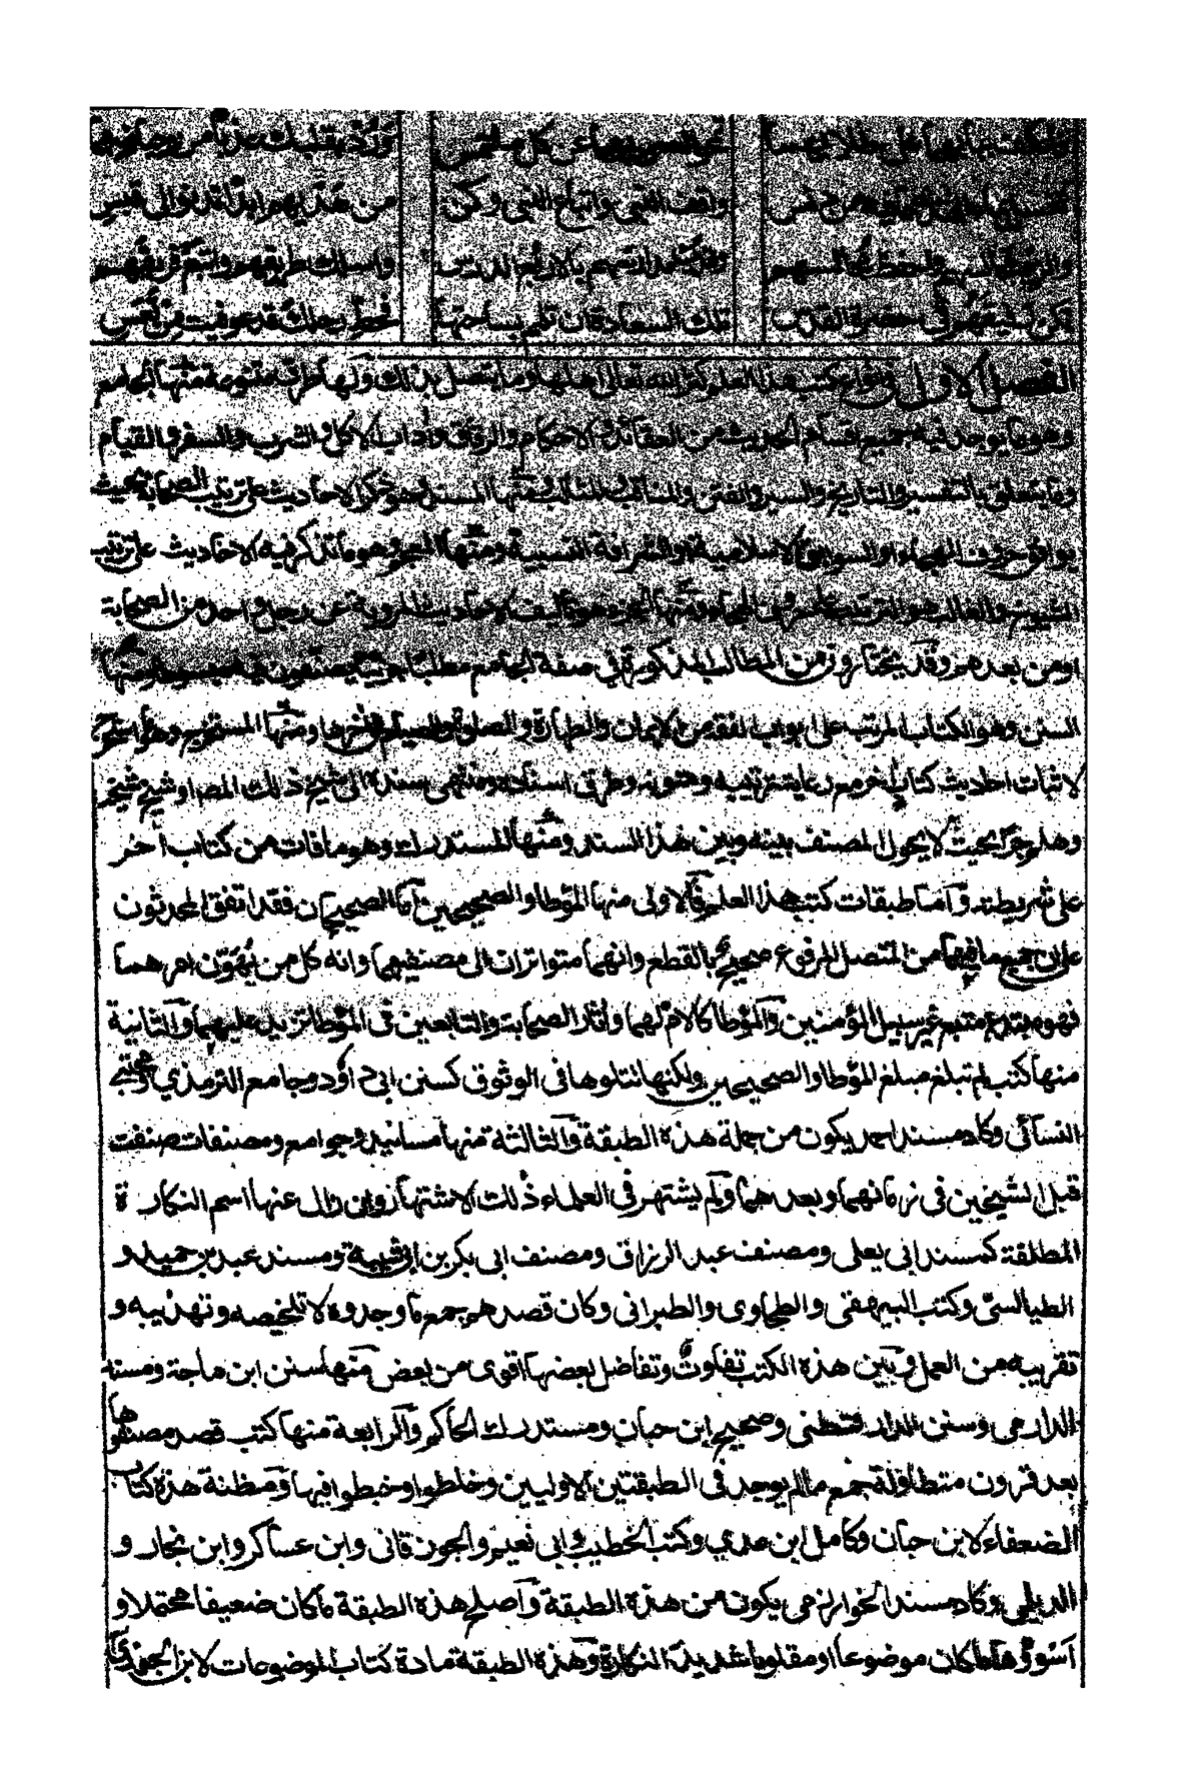 من هديهم ابدا تدنو الى قبس
واقف النبي واتباع النبي وكن
والزم مجالسهم واحفظ مجالسهم
واسلك طريقهم واتبع فريقهم
تلك السعادة ان تلمم بساحتها
فحط رحلك قد عوفيت من تعس
الفصل الاول في انواع كتب هذا العلم كثر الله تعالى اهلها وما يتصل بذلك ولها مراتب متنوعة منها الجامع
وهو ما يوجد فيه جميع اقسام الحديث من العقائد والاحكام والرقاق واداب الاكل والشرب والسفر والقيام
وما يتعلق بالتفسير والتاريخ والسير والفتن والمناقب والمثالب ومنها المسند وهو ذكر الاحاديث على ترتيب الصحابة بحيث
يوافق حروف الهجاء او السوابق الاسلامية او الشرافة النسبية ومنها المعجم وهو ما تذكر فيه الاحاديث على ترتيب
الشيوخ والغالب هو الترتيب على حروف الهجاء ومنها الجزء وهو تاليف الاحاديث المروية عن رجل واحد من الصحابة
او من بعدهم وقد يختارون من المطالب المذكورة في صفة الجامع مطلبا جزئيا يصنفون فيه مبسوطا ومنها
السنن وهو الكتاب المرتب على ابواب الفقه من الايمان والطهارة والصلوة والصيام الى اخرها ومنها المستخرج وهو ما استخرج
لاثبات احاديث كتاب اخر مع رعاية ترتيبه ومتونه وطرق اسناده ومنتهى سنده الى شيخ ذلك المص او شيخ شيخه
وهلم جرا بحيث لا يحول المصنف بينه وبين هذا السند ومنها المستدرك وهو ما فات من كتاب اخر
على شريطته واما طبقات كتب هذا العلم فالاولى منها المؤطا والصحيحين اما الصحيحان فقد اتفق المحدثون
على ان جميع ما فيهما من المتصل المرفوع صحيح بالقطع وانهما متواتران الى مصنفيهما وانه كل من يهون امرهما
فهو مبتدع متبع غير سبيل المؤمنين والمؤطا كالام لهما واثار الصحابة والتابعين في المؤطا تزيد عليهما والثانية
منها كتب لم تبلغ مبلغ المؤطا والصحيحين ولكنها تتلوها في الوثوق كسنن ابي داؤد وجامع الترمذي ومجتبى
النسائى وكاد مسند احمد يكون من جملة هذه الطبقة والثالثة منها مسانيد وجوامع ومصنفات صنفت
قبل الشيخين في زمانهما وبعدهما ولم يشتهر في العلماء ذلك الاشتهار وان زال عنها اسم النكارة
المطلقة كمسند ابى يعلى ومصنف عبد الرزاق ومصنف ابى بكر بن ابى شيبة ومسند عبد بن حميد و
الطيالسى وكتب البيهقى والطحاوى والطبرانى وكان قصدهم جمع ما وجدوه لا تلخيصه وتهذيبه و
تقريبه من العمل وبين هذه الكتب تفاوت وتفاضل بعضها اقوى من بعض منها سنن ابن ماجة ومسند
الدارمى وسنن الدارقطنى وصحيح ابن حبان ومستدرك الحاكم والرابعة منها كتب قصد مصنفوها
بعد قرون متطاولة جمع ما لم يوجد فى الطبقتين الاوليين وخلطوا وخبطوا فيها ومظنة هذه كتاب
الضعفاء لابن حبان وكامل ابن عدي وكتب الخطيب وابى نعيم والجوزقانى وابن عساكر وابن نجار و
الديلمى وكاد مسند الخوارزمى يكون من هذه الطبقة واصلح هذه الطبقة ما كان ضعيفا محتملا و
اسوؤها ما كان موضوعا او مقلوبا شديد النكارة وهذه الطبقة مادة كتاب الموضوعات لابن الجوزي